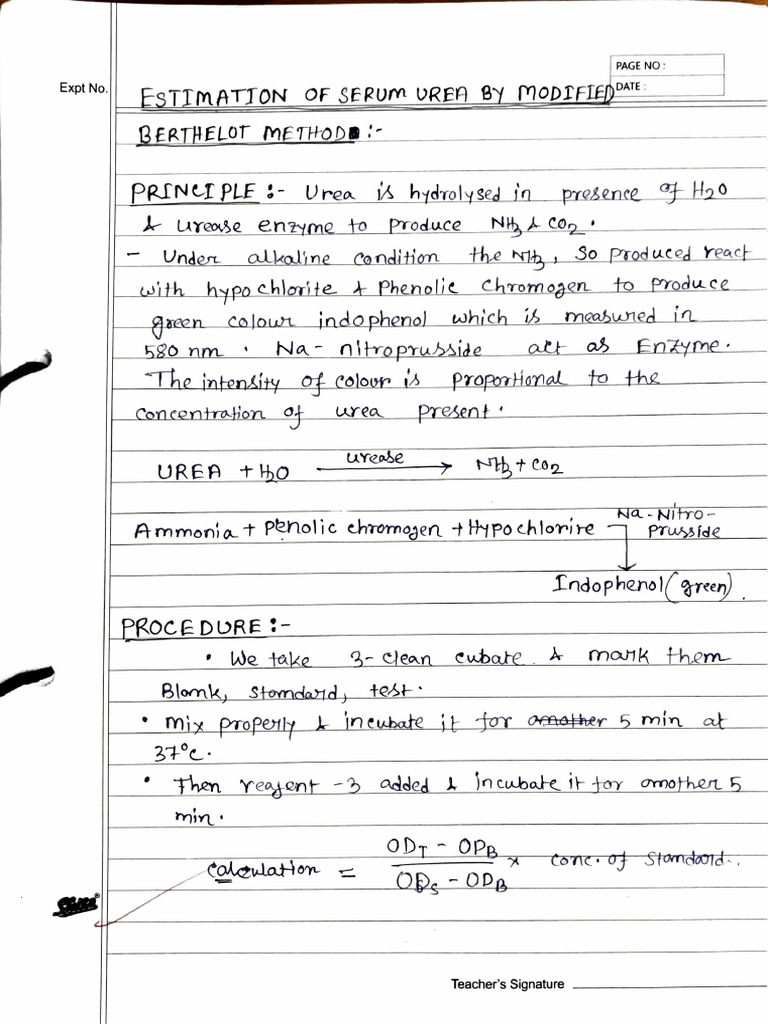 PAGE NO :
Expt No.
DATE :
ESTIMATION OF SERUM UREA BY MODIFIED
BERTHELOT METHOD :-
PRINCIPLE :- Urea is hydrolysed in presence of H2O
& urease enzyme to produce NH3 & CO2.
- Under alkaline condition the NH3, so produced react
with hypochlorite & Phenolic chromogen to produce
green colour indophenol which is measured in
580 nm . Na- nitroprusside act as Enzyme.
The intensity of colour is proportional to the
concentration of urea present.
urease
UREA + H2O ⟶ NH3 + CO2
Na-Nitro-
Ammonia + Penolic chromogen + Hypochlorire
Prusside
Indophenol (green).
PROCEDURE :-
• We take 3-clean cubate & mark them
Blank, standard, test.
• mix properly & incubate it for another 5 min at
37°c.
• Then reagent -3 added & incubate it for another 5
min.
ODT - OPB
calculation = × conc. of standard..
ODS - ODB
Teacher's Signature